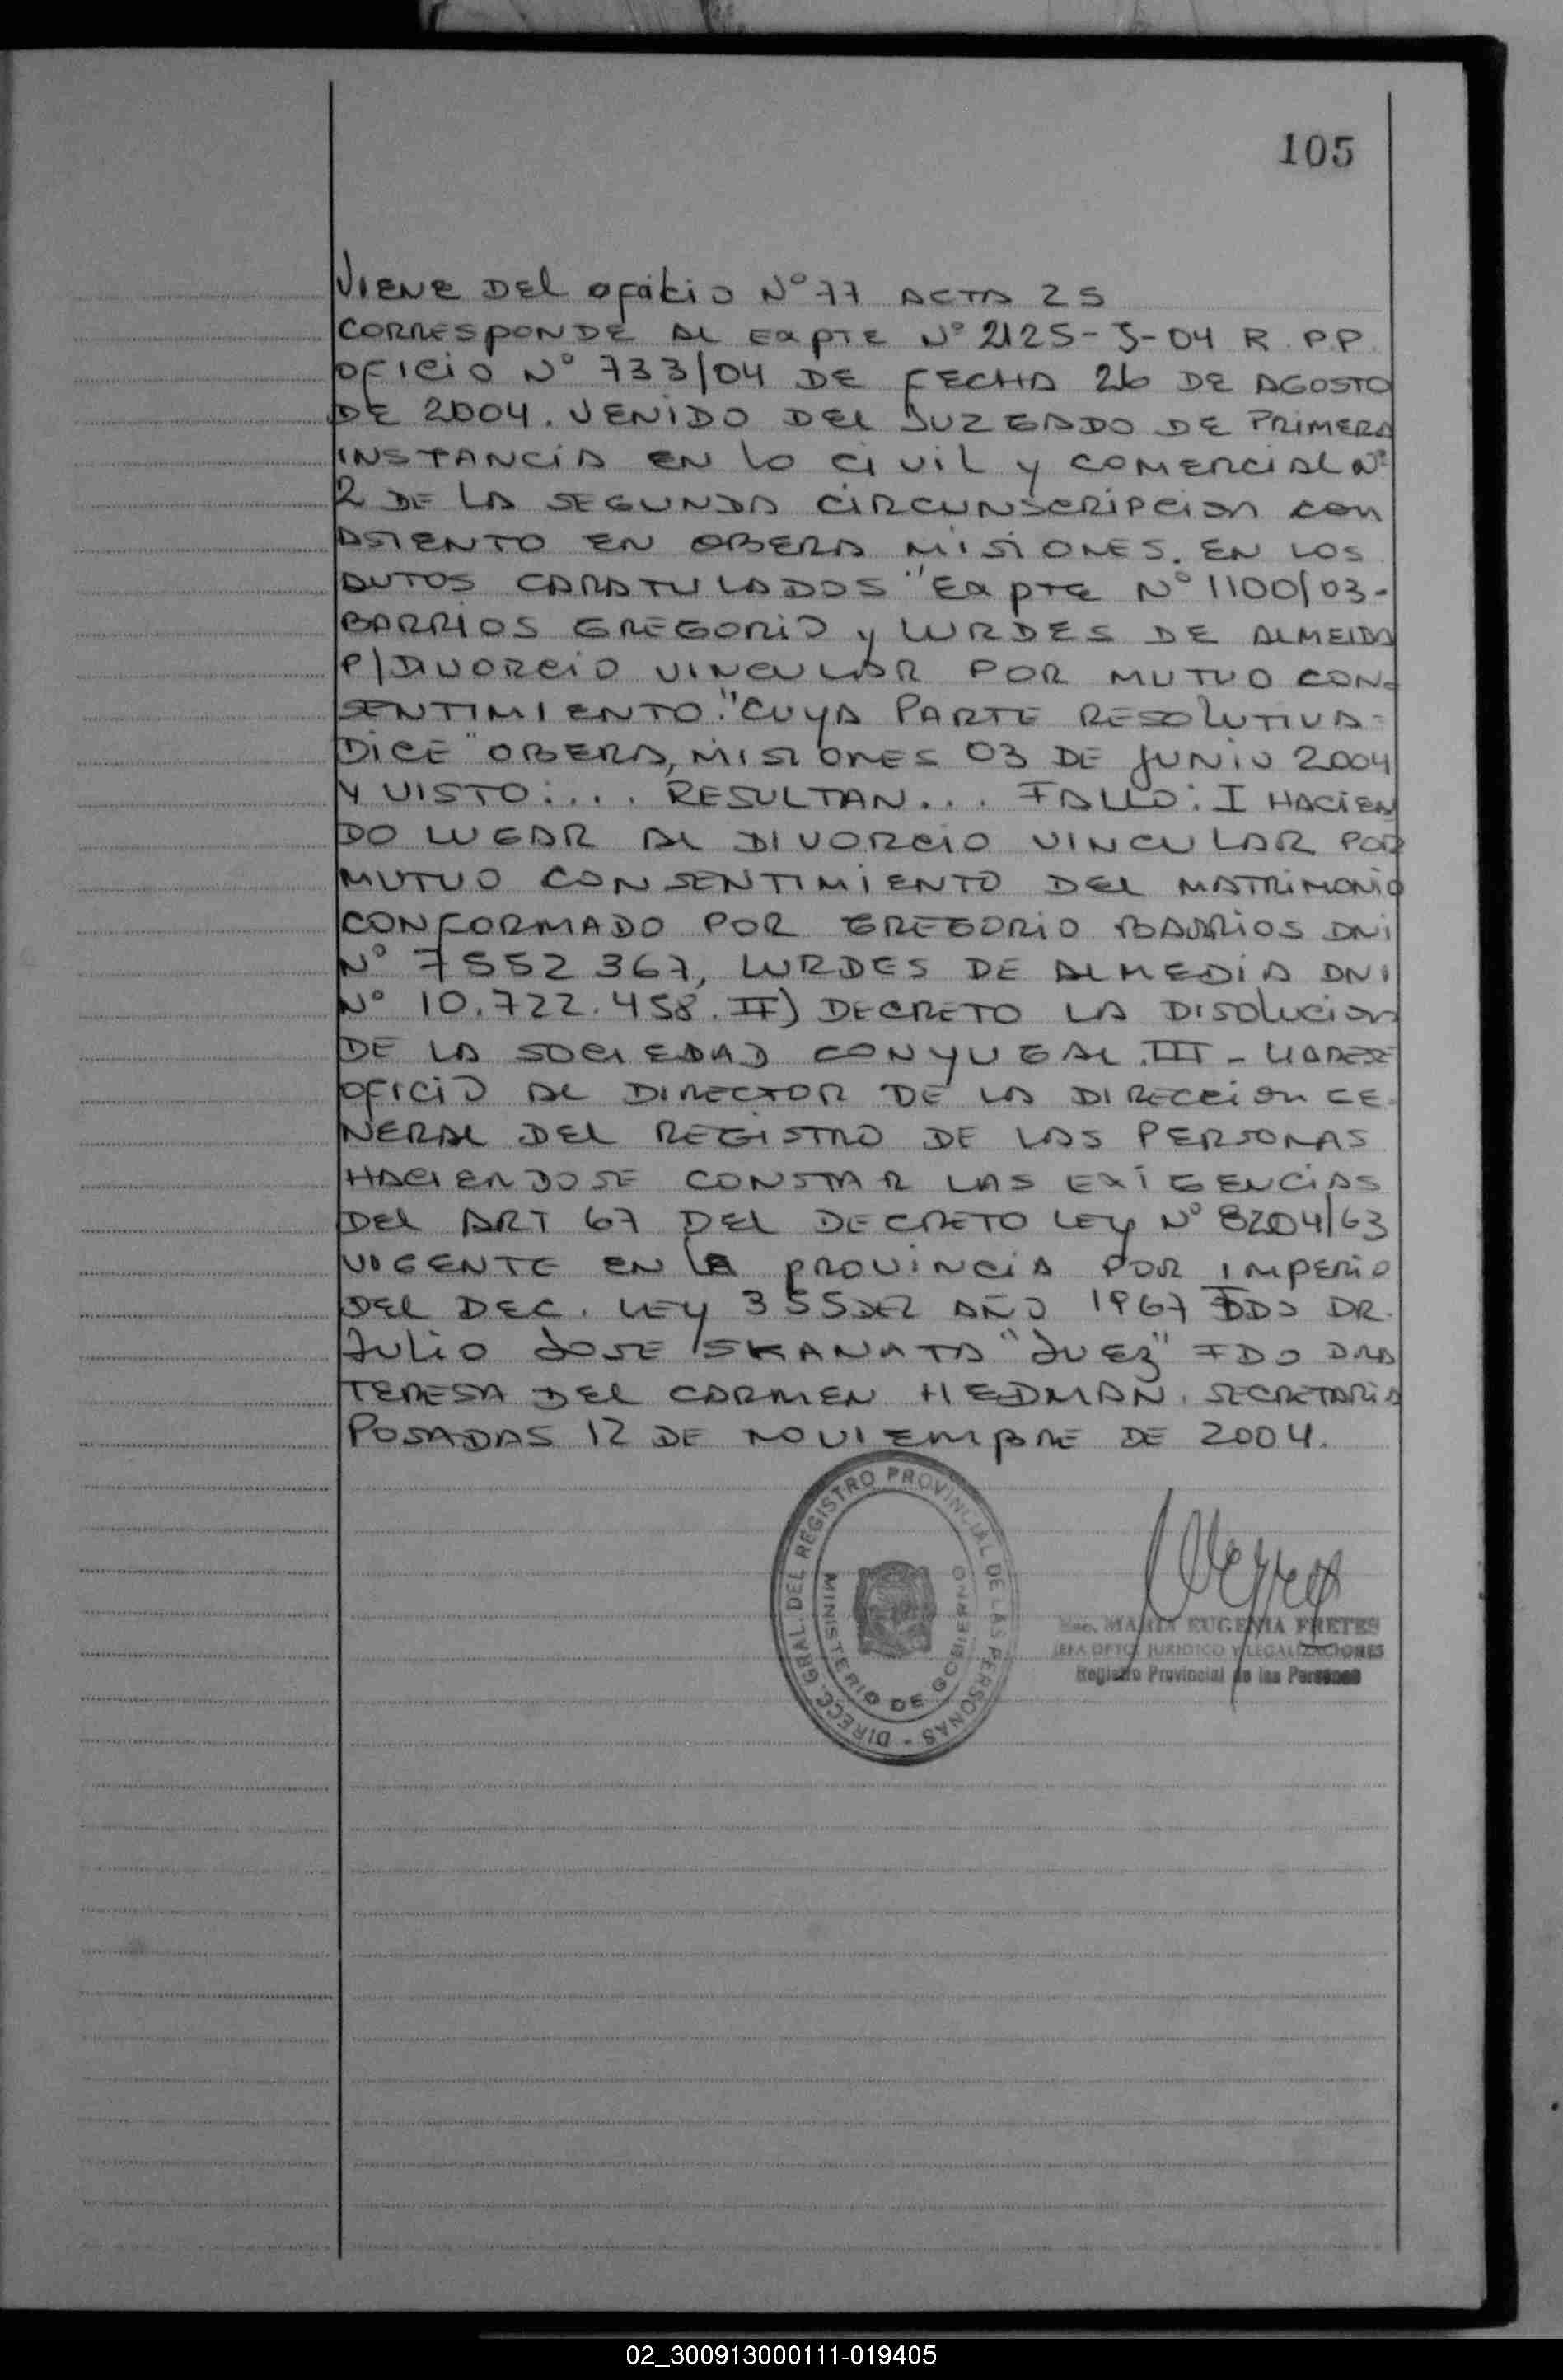 105
VIENE DEL OFICIO N° 77 ACTA 25
CORRESPONDE AL EXPTE N° 2125-J-04 R.P.P.
OFICIO N° 733/04 DE FECHA 26 DE AGOSTO
DE 2004. VENIDO DEL JUZGADO DE PRIMERA
INSTANCIA EN LO CIVIL Y COMERCIAL N°
2 DE LA SEGUNDA CIRCUNSCRIPCION CON
ASIENTO EN OBERA MISIONES. EN LOS
AUTOS CARATULADOS "EXPTE N° 1100/03-
BARRIOS GREGORIO Y LURDES DE ALMEIDA
P/DIVORCIO VINCULAR POR MUTUO CON-
SENTIMIENTO." CUYA PARTE RESOLUTIVA-
DICE "OBERA, MISIONES 03 DE JUNIO 2004
Y VISTO:... RESULTAN... FALLO: I HACIEN
DO LUGAR AL DIVORCIO VINCULAR POR
MUTUO CONSENTIMIENTO DEL MATRIMONIO
CONFORMADO POR GREGORIO BARRIOS DNI
N° 7552367, LURDES DE ALMEDIA DNI
N° 10.722.458. II) DECRETO LA DISOLUCION
DE LA SOCIEDAD CONYUGAL. III - LIBRESE
OFICIO AL DIRECTOR DE LA DIRECCION GE-
NERAL DEL REGISTRO DE LAS PERSONAS
HACIENDOSE CONSTAR LAS EXIGENCIAS
DEL ART 67 DEL DECRETO LEY N° 8204/63
VIGENTE EN LA PROVINCIA POR IMPERIO
DEL DEC. LEY 355 DEL AÑO 1967 FDO DR.
JULIO JOSE SKANATA "JUEZ" FDO DRA
TERESA DEL CARMEN HEDMAN. SECRETARIA
POSADAS 12 DE NOVIEMBRE DE 2004.
DIRECC. GRAL. DEL REGISTRO PROVINCIAL DE LAS PERSONAS -
MINISTERIO DE GOBIERNO
MARIA EUGENIA FRETES
JEFA DPTO. JURIDICO Y LEGALIZACIONES
Registro Provincial de las Personas
02_300913000111-019405